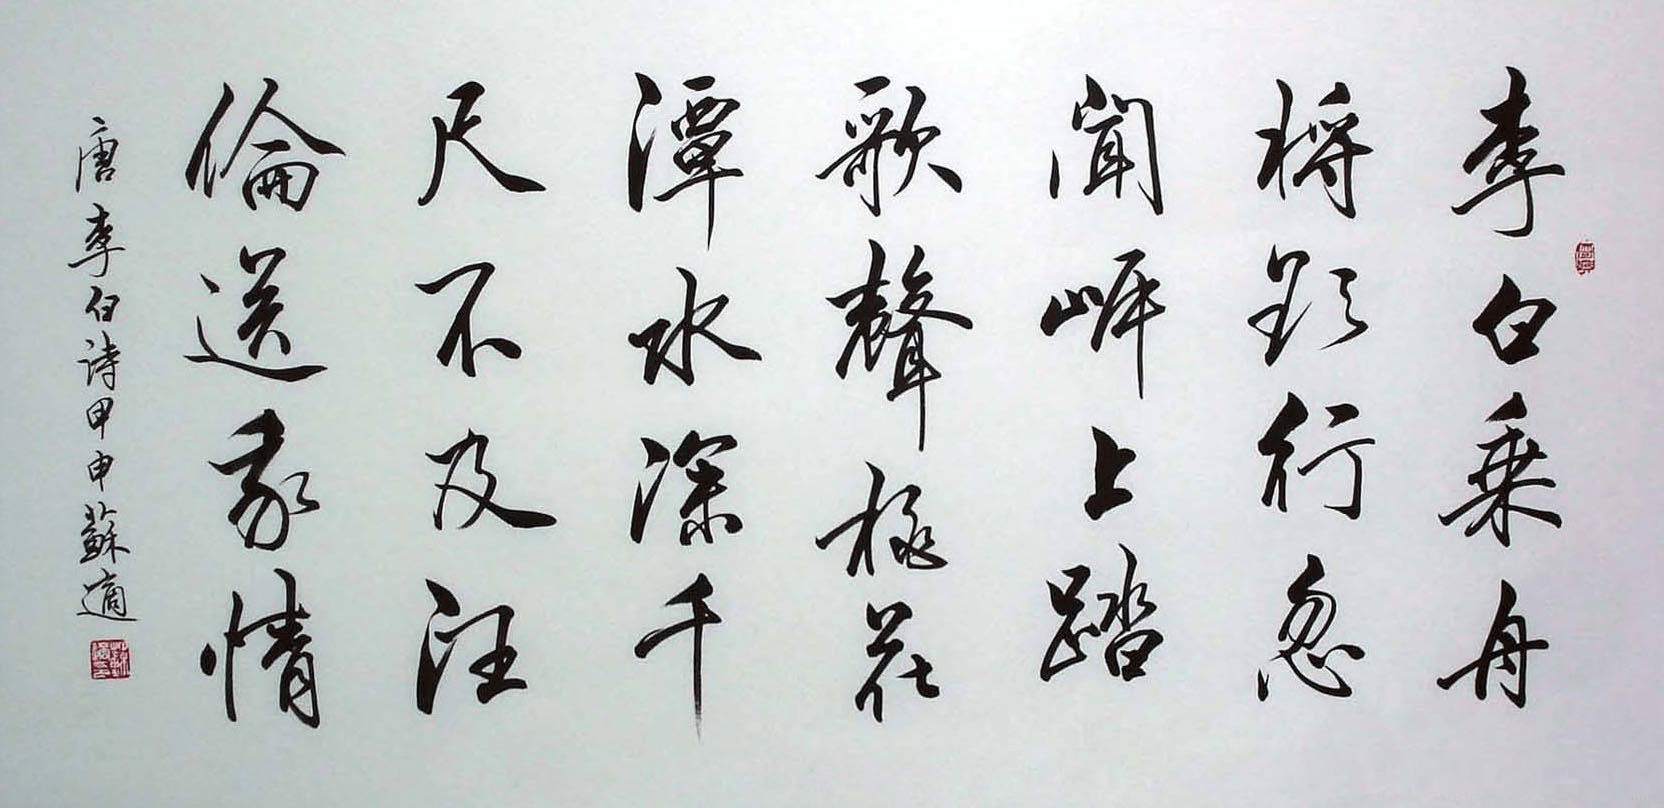 李白乘舟
將欲行忽
聞岸上踏
歌聲桃花
潭水深千
尺不及汪
倫送我情
唐李白詩甲申蘇適